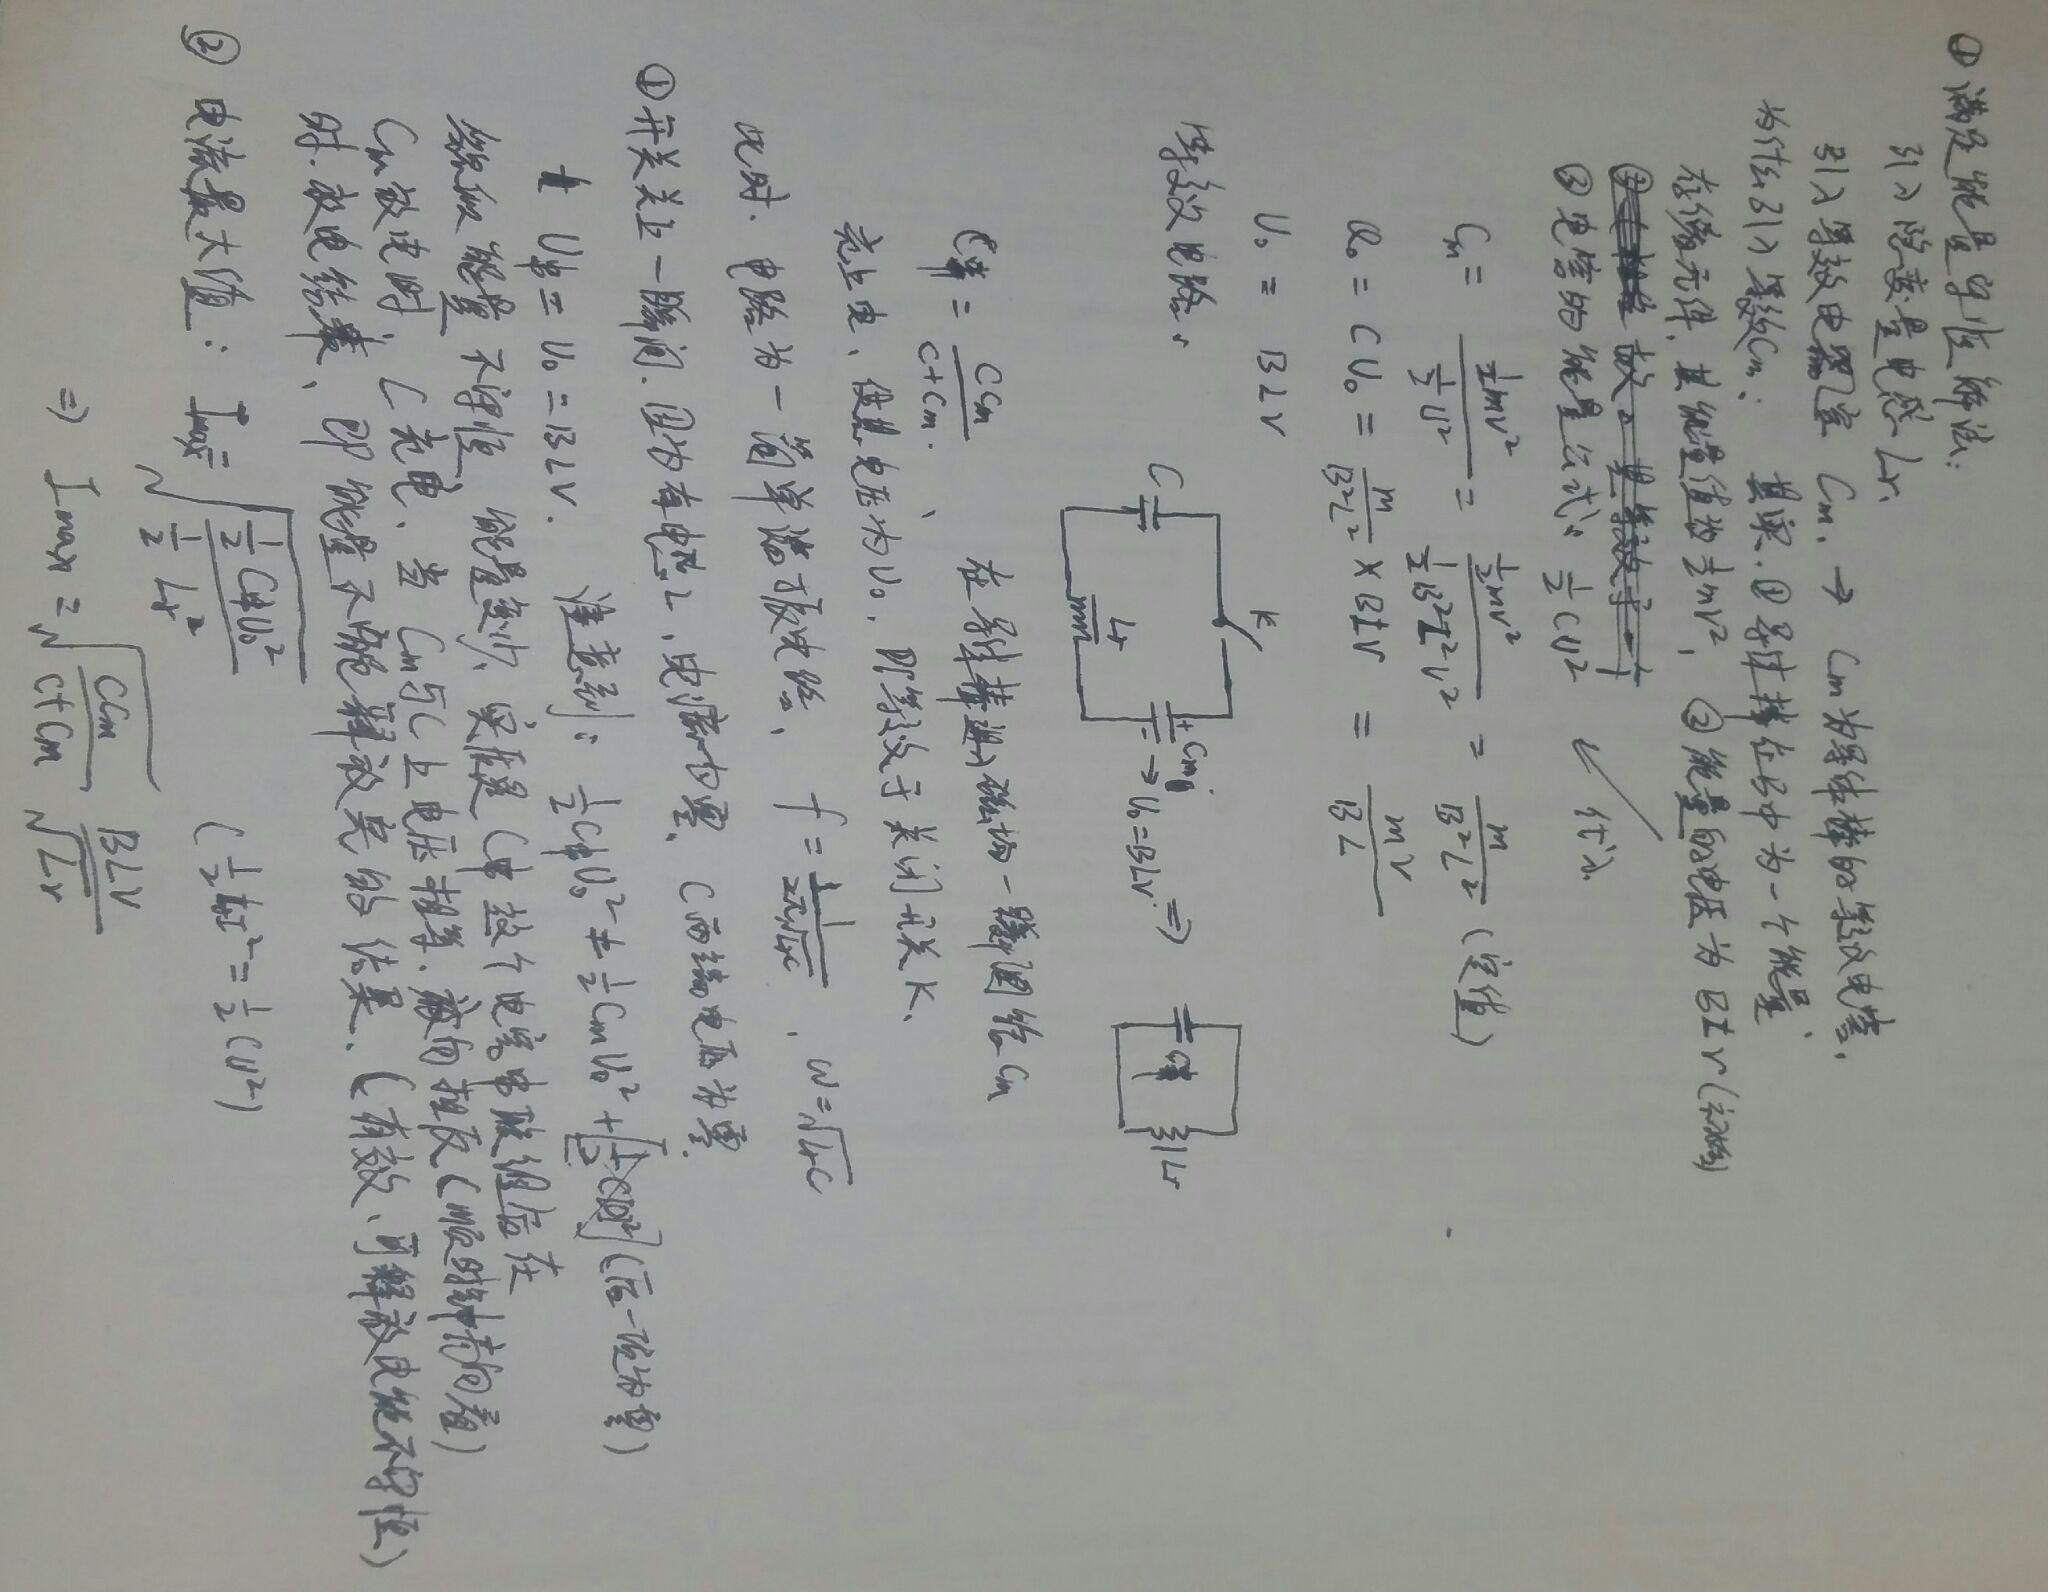 ① 满足能量守恒解法:
引入隐变量电感 Lr,
引入等效电容 Cm, → Cm为导体棒的等效电容,
为什么引入等效Cm: 其实,①导体棒在B中为一个能量
存储元件,其能量值为½mv², ②能量的电压为 BLv (初始)
③ 电容的能量公式: ½CU² ↙ 代入
Cm = ½mv² / ½U² = ½mv² / ½B²L²v² = m / B²L² (定值)
Q₀ = CU₀ = m/B²L² × BLV = mv/BL
U₀ = BLV
等效电路:
C K Lr + Cm → U₀=BLV ⇒ C串 Lr
C串 = CCm / C+Cm , 在导体棒进入磁场一瞬间给Cm
充上电,使其电压为U₀,即等效于关闭开关K,
此时,电路为一简单LC振荡电路, f = 1/2π√LrC , ω=√LrC
①开关关上一瞬间,因为有电感L,电流为零,C两端电压为零
U串 = U₀ = BLV. 注意到: ½C串U₀² ≠ ½CmU₀² + [½CU²] (后一项为零)
貌似能量不守恒,能量变少,实质是C串这个电容串联组合在
Cm放电时,C充电,当Cm与C上电压相等,方向相反(顺时针方向看)
时,放电结束,即能量不能释放完的结果,(有效,可释放电能不守恒)
② 电流最大值: Imax = √(½C串U₀² / ½Lr) (½LI² = ½CU²)
⇒ Imax = √(CCm / C+Cm) BLV / √Lr